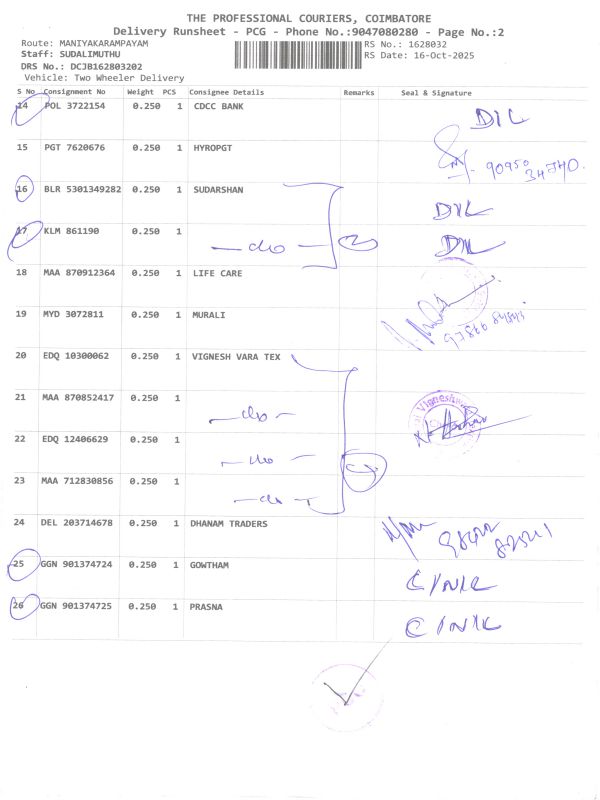 THE PROFESSIONAL COURIERS, COIMBATORE
Delivery Runsheet - PCG - Phone No.:9047080280 - Page No.:2
Route: MANIYAKARAMPAYAM RS No.: 1628032
Staff: SUDALIMUTHU RS Date: 16-Oct-2025
DRS No.: DCJB162803202
Vehicle: Two Wheeler Delivery
S No Consignment No Weight PCS Consignee Details Remarks Seal & Signature
14 POL 3722154 0.250 1 CDCC BANK D/L
15 PGT 7620676 0.250 1 HYROPGT 90950 34740.
16 BLR 5301349282 0.250 1 SUDARSHAN D/L
17 KLM 861190 0.250 1 —do— 2 D/L
18 MAA 870912364 0.250 1 LIFE CARE
19 MYD 3072811 0.250 1 MURALI
20 EDQ 10300062 0.250 1 VIGNESH VARA TEX
21 MAA 870852417 0.250 1 —do—
22 EDQ 12406629 0.250 1 —do—
23 MAA 712830856 0.250 1 —do—
24 DEL 203714678 0.250 1 DHANAM TRADERS
25 GGN 901374724 0.250 1 GOWTHAM C/NIL
26 GGN 901374725 0.250 1 PRASNA C/NIL